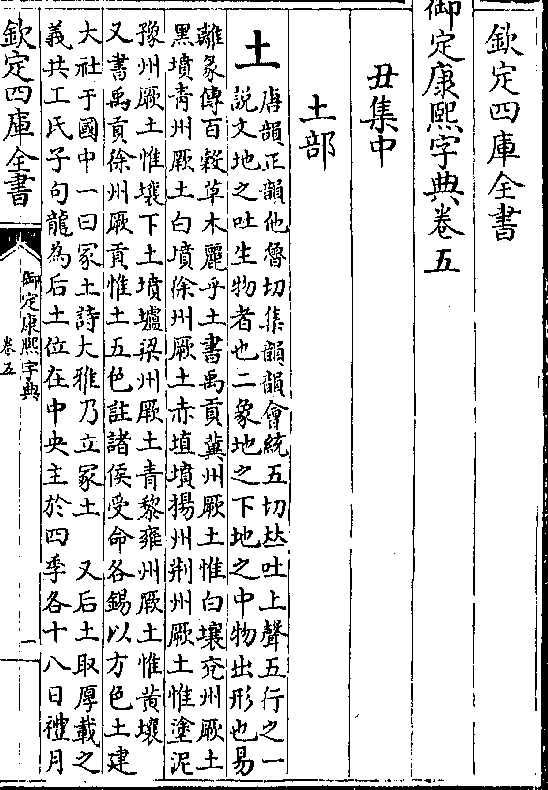 欽定四庫全書
御定康熙字典卷五
丑集中
土部
土
唐韻正韻他魯切集韻韻會統五切𠀤吐上聲五行之一
說文地之吐生物者也二象地之下地之中物出形也易
離彖傳百穀草木麗乎土書禹貢冀州厥土惟白壤兗州厥土
黑墳靑州厥土白墳徐州厥土赤埴墳揚州荆州厥土惟塗泥
豫州厥土惟壤下土墳壚梁州厥土青黎雍州厥土惟黄壤
又書禹貢徐州厥貢惟土五色註諸侯受命各錫以方色土建
大社于國中一曰冢土詩大雅乃立冢土　又后土取厚載之
義共工氏子句龍為后土位在中央主於四季各十八日禮月
欽定四庫全書
御定康熙字典
卷五
一